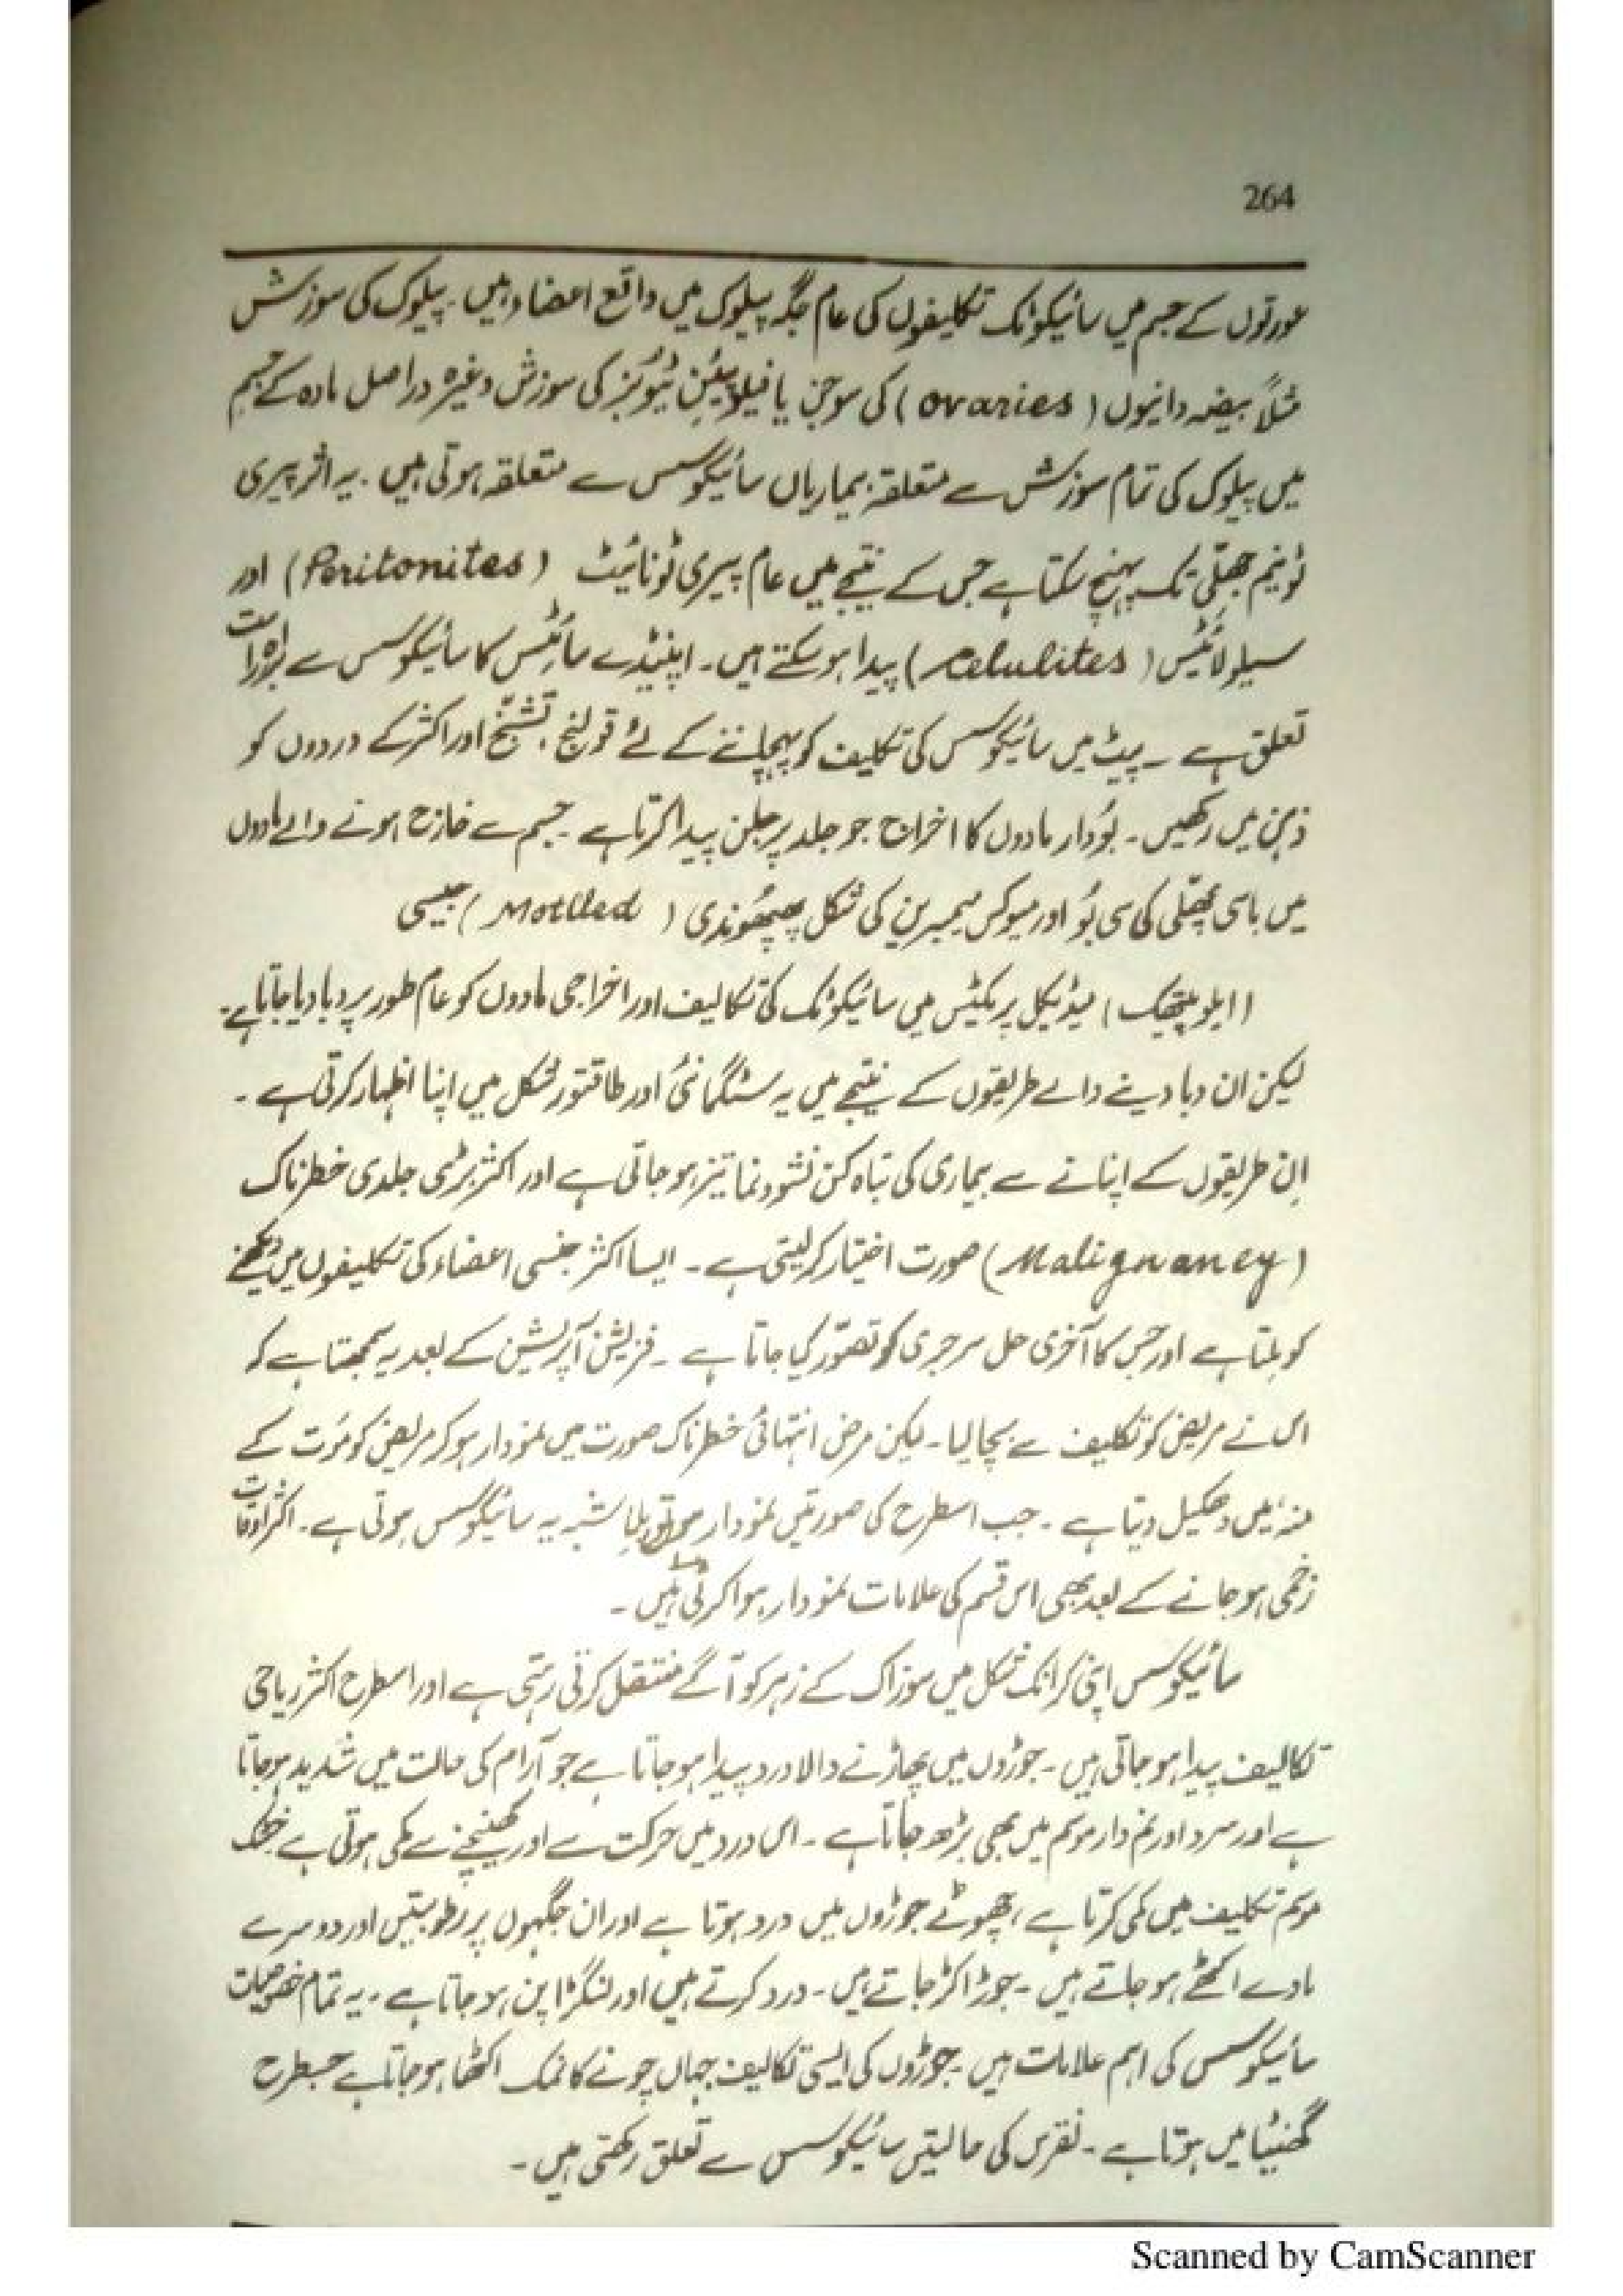 264
عورتوں کے جسم میں سائیکوٹک تکلیفوں کی عام جگہ پیلوک میں واقع اعضاء ہیں۔ پیلوک کی سوزش
مثلاً بیضہ دانیوں (ovaries) کی سوجن یا فیلوپیئن ٹیوبز کی سوزش وغیرہ دراصل مادہ کے جسم
میں پیلوک کی تمام سوزش سے متعلقہ بیماریاں سائیکوسس سے متعلقہ ہوتی ہیں۔ یہ اثر پیری
ٹونیم جھلّی تک پہنچ سکتا ہے جس کے نتیجے میں عام پیری ٹونائیٹ (Peritonites) اور
سیلولائٹس (celulites) پیدا ہو سکتے ہیں۔ اپنیڈے سائٹس کا سائیکوسس سے براہ راست
تعلق ہے۔ پیٹ میں سائیکوسس کی تکلیف کو پہچاننے کے لئے قولنج، تشنّج اور اکثر کے دردوں کو
ذہن میں رکھیں۔ بُودار مادوں کا اخراج جو جلد پر جلن پیدا کرتا ہے۔ جسم سے خارج ہونے والے مادوں
میں باسی مچھلی کی سی بُو اور میوکس میمبرین کی شکل پھپھُوندی (Motlled) جیسی
(ایلوپیتھک) میڈیکل پریکٹس میں سائیکوٹک کی تکالیف اور اخراجی مادوں کو عام طور پر دبا دیا جاتا ہے۔
لیکن ان دبا دینے والے طریقوں کے نتیجے میں یہ سٹگمائی اور طاقتور شکل میں اپنا اظہار کرتی ہے۔
اِن طریقوں کے اپنانے سے بیماری کی تباہ کن نشوونما تیز ہو جاتی ہے اور اکثر بڑی جلدی خطرناک
(Malignancy) صورت اختیار کر لیتی ہے۔ ایسا اکثر جنسی اعضاء کی تکلیفوں میں دیکھنے
کو ملتا ہے اور جس کا آخری حل سرجری کو تصوّر کیا جاتا ہے۔ فزیشن آپریشن کے بعد یہ سمجھتا ہے کہ
اس نے مریض کو تکلیف سے بچا لیا۔ لیکن مرض انتہائی خطرناک صورت میں نمودار ہو کر مریض کو موت کے
منہ میں دھکیل دیتا ہے۔ جب اسطرح کی صورتیں نمودار ہوں تو بلا شبہ یہ سائیکوسس ہوتی ہے۔ اکثر اوقات
زخمی ہو جانے کے بعد بھی اس قسم کی علامات نمودار ہوا کرتی ہیں۔
سائیکوسس اپنی کرانک شکل میں سوزاک کے زہر کو آگے منتقل کرتی رہتی ہے اور اسطرح اکثر ریاحی
تکالیف پیدا ہو جاتی ہیں۔ جوڑوں میں پھاڑنے والا درد پیدا ہو جاتا ہے جو آرام کی حالت میں شدید ہو جاتا
ہے اور سرد اور نم دار موسم میں بھی بڑھ جاتا ہے۔ اس درد میں حرکت سے اور کھینچنے سے کمی ہوتی ہے خشک
موسم تکلیف میں کمی کرتا ہے، چھوٹے جوڑوں میں درد ہوتا ہے اور ان جگہوں پر رطوبتیں اور دوسرے
مادے اکٹھے ہو جاتے ہیں۔ جوڑ اکڑ جاتے ہیں۔ درد کرتے ہیں اور لنگڑا پن ہو جاتا ہے۔ یہ تمام خصوصیات
سائیکوسس کی اہم علامات ہیں۔ جوڑوں کی ایسی تکالیف جہاں چونے کا نمک اکٹھا ہو جاتا ہے جسطرح
گھنٹیا میں ہوتا ہے۔ نقرس کی حالیتں سائیکوسس سے تعلق رکھتی ہیں۔
Scanned by CamScanner